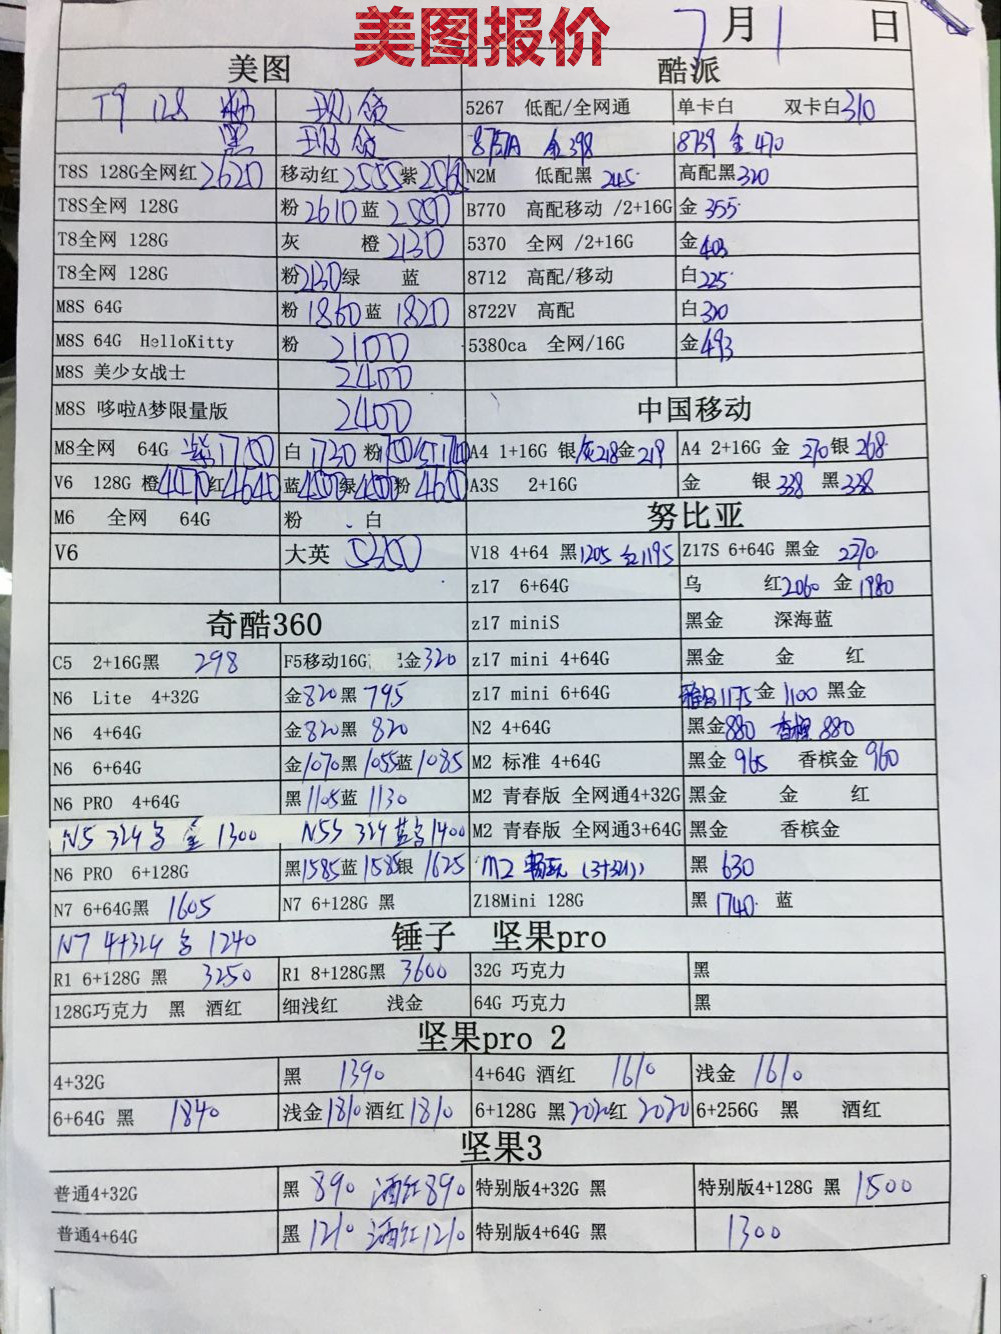 美图报价
7月1日
美图 酷派
T9 128 现货 5267 低配/全网通 单卡白 双卡白310
黑 现货 8737A 金398 8739 金470
T8S 128G全网红2620 移动红2555紫2560 N2M 低配黑 245 高配黑320
T8S全网 128G 粉2610蓝2550 B770 高配移动 /2+16G 金 355
T8全网 128G 灰 橙2130 5370 全网 /2+16G 金403
T8全网 128G 粉2130绿 蓝 8712 高配/移动 白225
M8S 64G 粉 1860蓝 1820 8722V 高配 白320
M8S 64G HelloKitty 粉 2100 5380ca 全网/16G 金493
M8S 美少女战士 2400
M8S 哆啦A梦限量版 2400 中国移动
M8全网 64G 紫1700 白 1730 粉 A4 1+16G 银/灰218金219 A4 2+16G 金 270银 268
V6 128G 橙4470红4640 蓝4500绿4500粉 4600 A3S 2+16G 金 银 338 黑338
M6 全网 64G 粉 白 努比亚
V6 大英 5350 V18 4+64 黑1205 红1195 Z17S 6+64G 黑金 2270
z17 6+64G 乌 红2060 金 1980
奇酷360 z17 miniS 黑金 深海蓝
C5 2+16G黑 298 F5移动16G 配金320 z17 mini 4+64G 黑金 金 红
N6 Lite 4+32G 金820黑 795 z17 mini 6+64G 1175金 1100 黑金
N6 4+64G 金820黑 820 N2 4+64G 黑金880 香槟 880
N6 6+64G 金1070黑 1055蓝1085 M2 标准 4+64G 黑金 965 香槟金 960
N6 PRO 4+64G 黑1105蓝 1130 M2 青春版 全网通4+32G 黑金 金 红
N5 32G 金 1300 N5S 32G 1400 M2 青春版 全网通3+64G 黑金 香槟金
N6 PRO 6+128G 黑1585蓝1585银 1625 M2 畅玩 (3+32G) 黑 630
N7 6+64G黑 1605 N7 6+128G 黑 Z18Mini 128G 黑 1740 蓝
N7 4+32G 1240 锤子 坚果pro
R1 6+128G 黑 3250 R1 8+128G黑 3600 32G 巧克力 黑
128G巧克力 黑 酒红 细浅红 浅金 64G 巧克力 黑
坚果pro 2
4+32G 黑 1390 4+64G 酒红 1610 浅金 1610
6+64G 黑 1840 浅金1810酒红1810 6+128G 黑2020红 2020 6+256G 黑 酒红
坚果3
普通4+32G 黑 890 酒红890 特别版4+32G 黑 特别版4+128G 黑 1500
普通4+64G 黑 1210 酒红1210 特别版4+64G 黑 1300